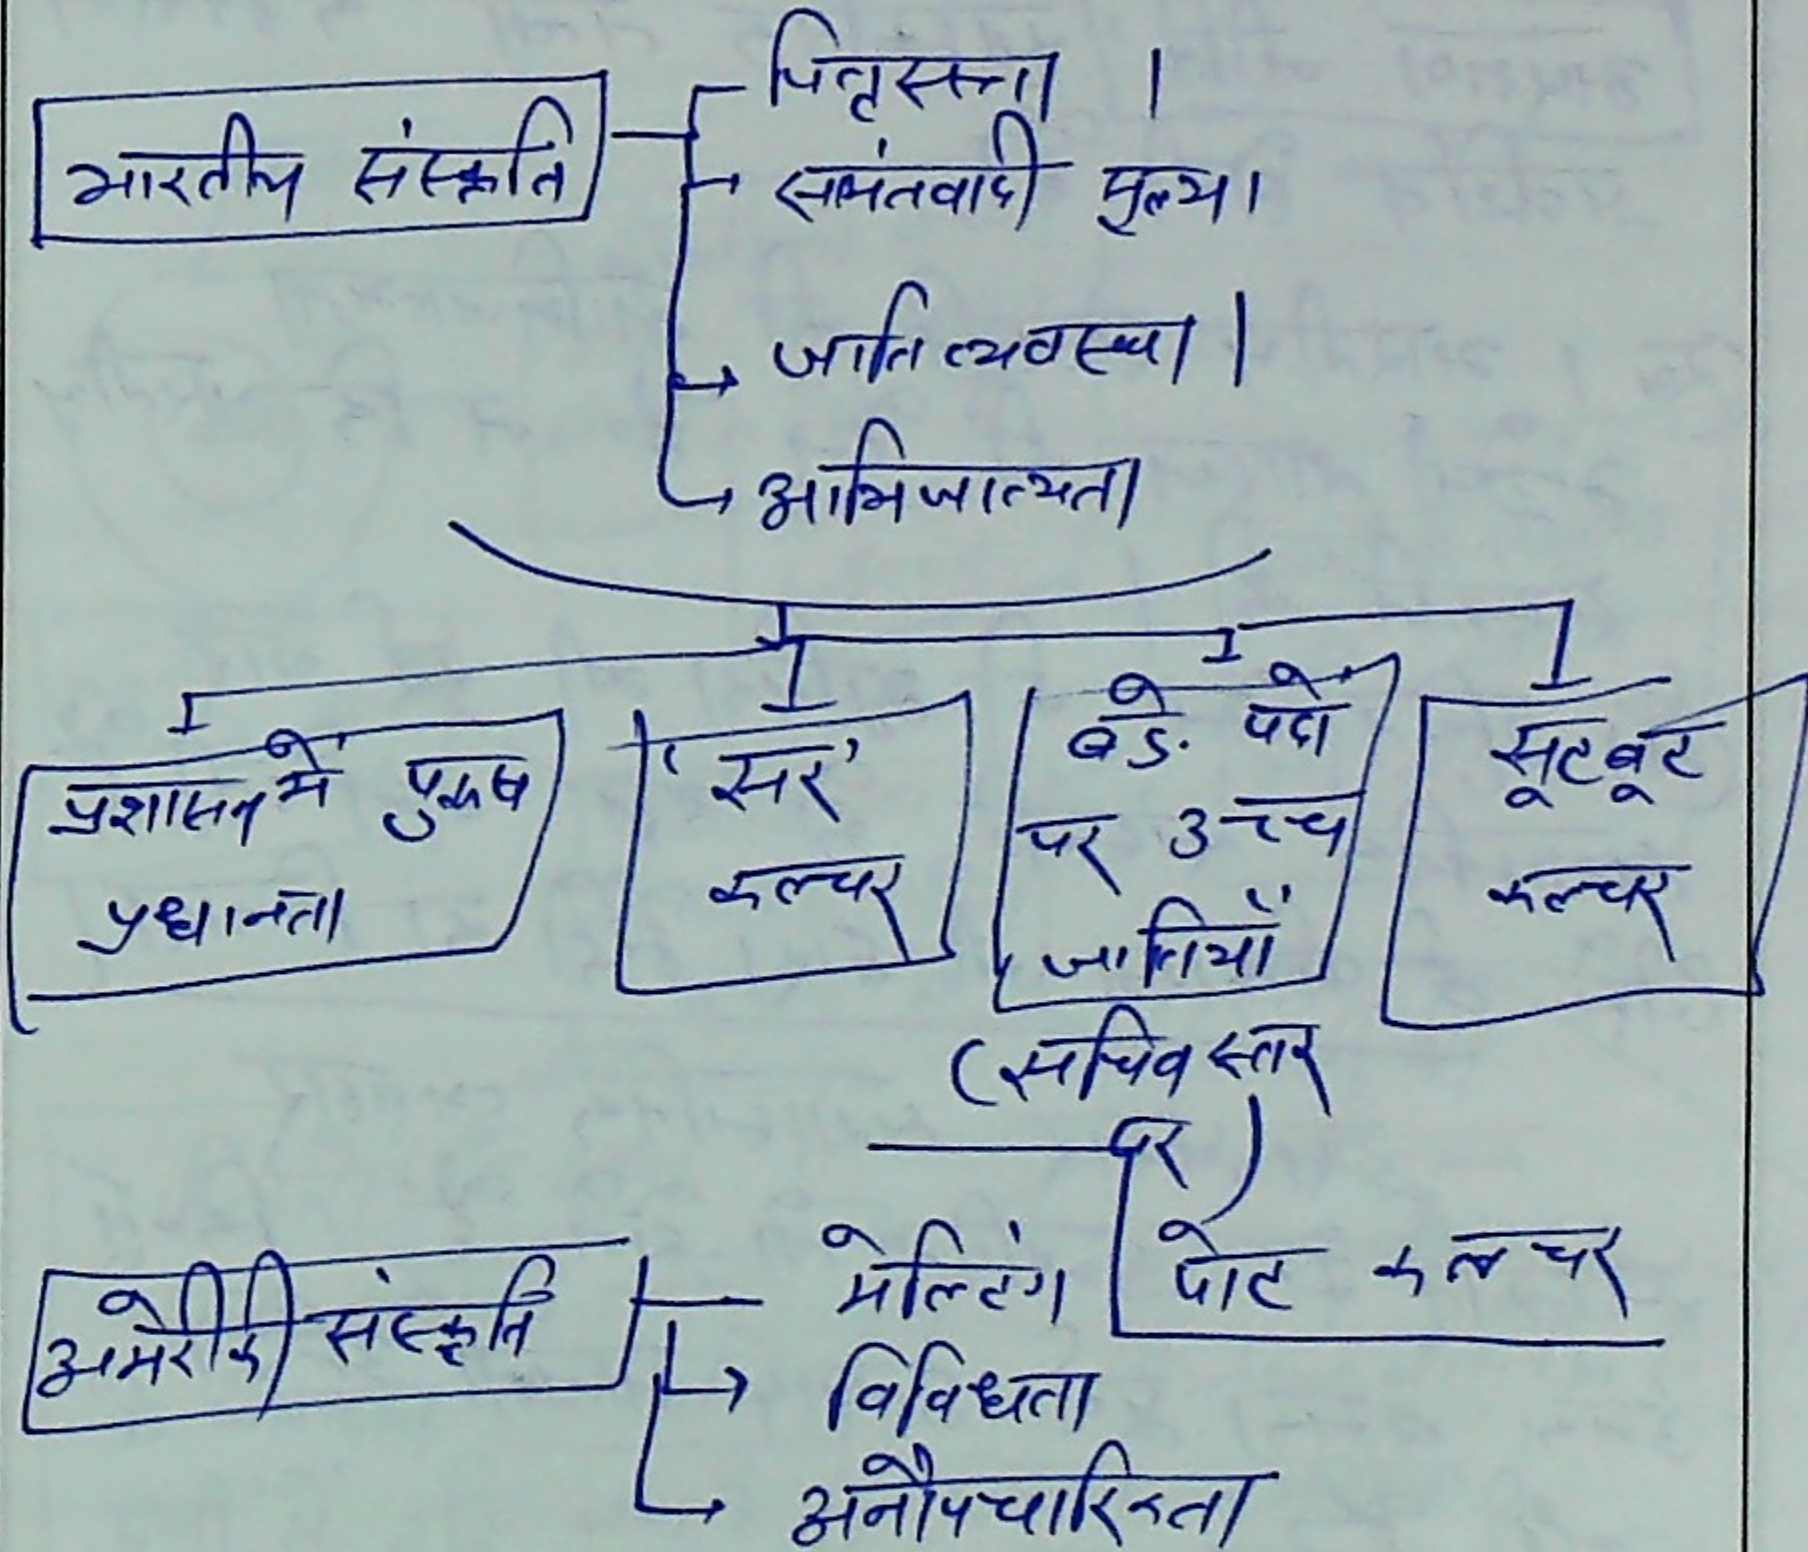 पितृसत्ता ।
भारतीय संस्कृति
सामंतवादी मूल्य।
जाति व्यवस्था।
आभिजात्यता
प्रशासन में पुरुष
प्रधानता
'सर'
कल्चर
बड़े पदों
पर उच्च
जातियाँ
(सचिव स्तर
पर)
सूटबूट
कल्चर
अमेरीकी संस्कृति
मेल्टिंग पोट कलचर
विविधता
अनौपचारिकता